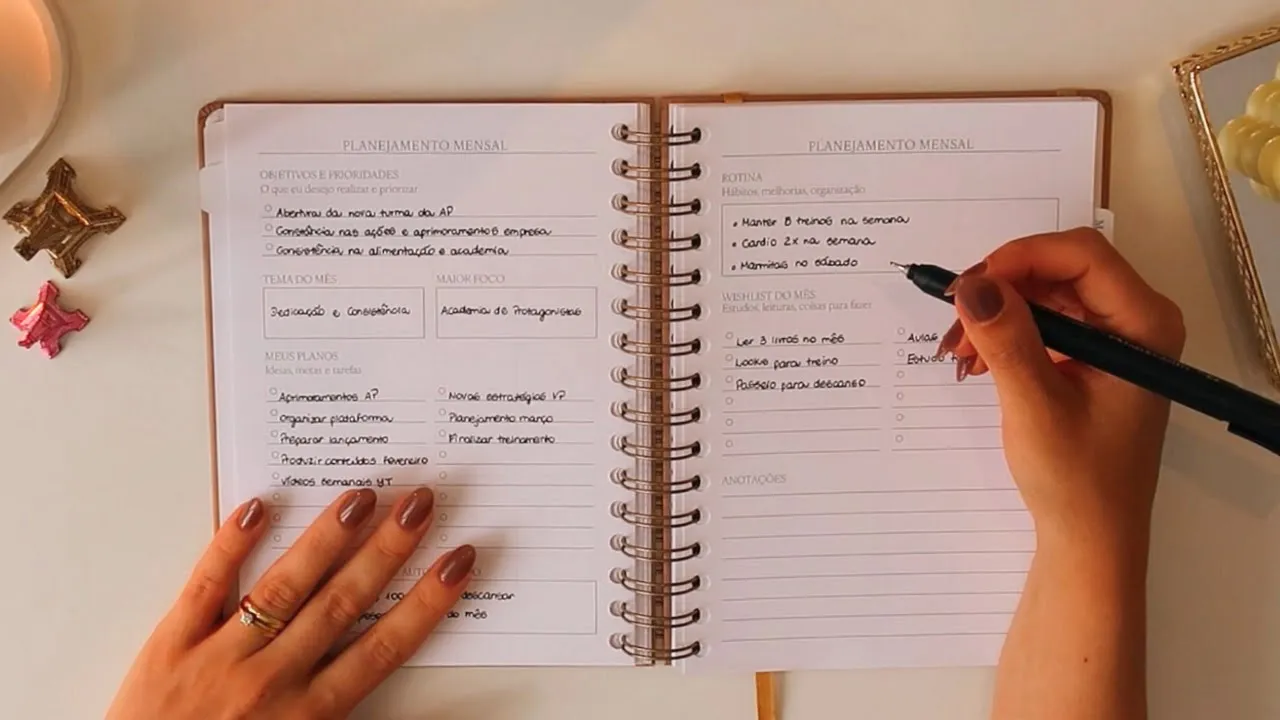 PLANEJAMENTO MENSAL
OBJETIVOS E PRIORIDADES
O que eu desejo realizar e priorizar
Abertura da nova turma da AP
Constância nas ações e aprimoramentos empresa
Consistência na alimentação e academia
TEMA DO MÊS
Dedicação e Consistência
MAIOR FOCO
Academia de Protagonistas
MEUS PLANOS
Ideias, metas e tarefas
Aprimoramentos AP
Organizar plataforma
Preparar lançamento
Produzir conteúdos fevereiro
Vídeos semanais YT
Novas estratégias VP
Planejamento março
Finalizar treinamento
100
descansar
do mês
PLANEJAMENTO MENSAL
ROTINA
Hábitos, melhorias, organização
• Manter 5 treinos na semana
• Cardio 2x na semana
• Marmitas no sábado
WISHLIST DO MÊS
Estudos, leituras, coisas para fazer
Ler 3 livros no mês
Looks para treino
Passeio para descanso
Aulas
Estudo
ANOTAÇÕES